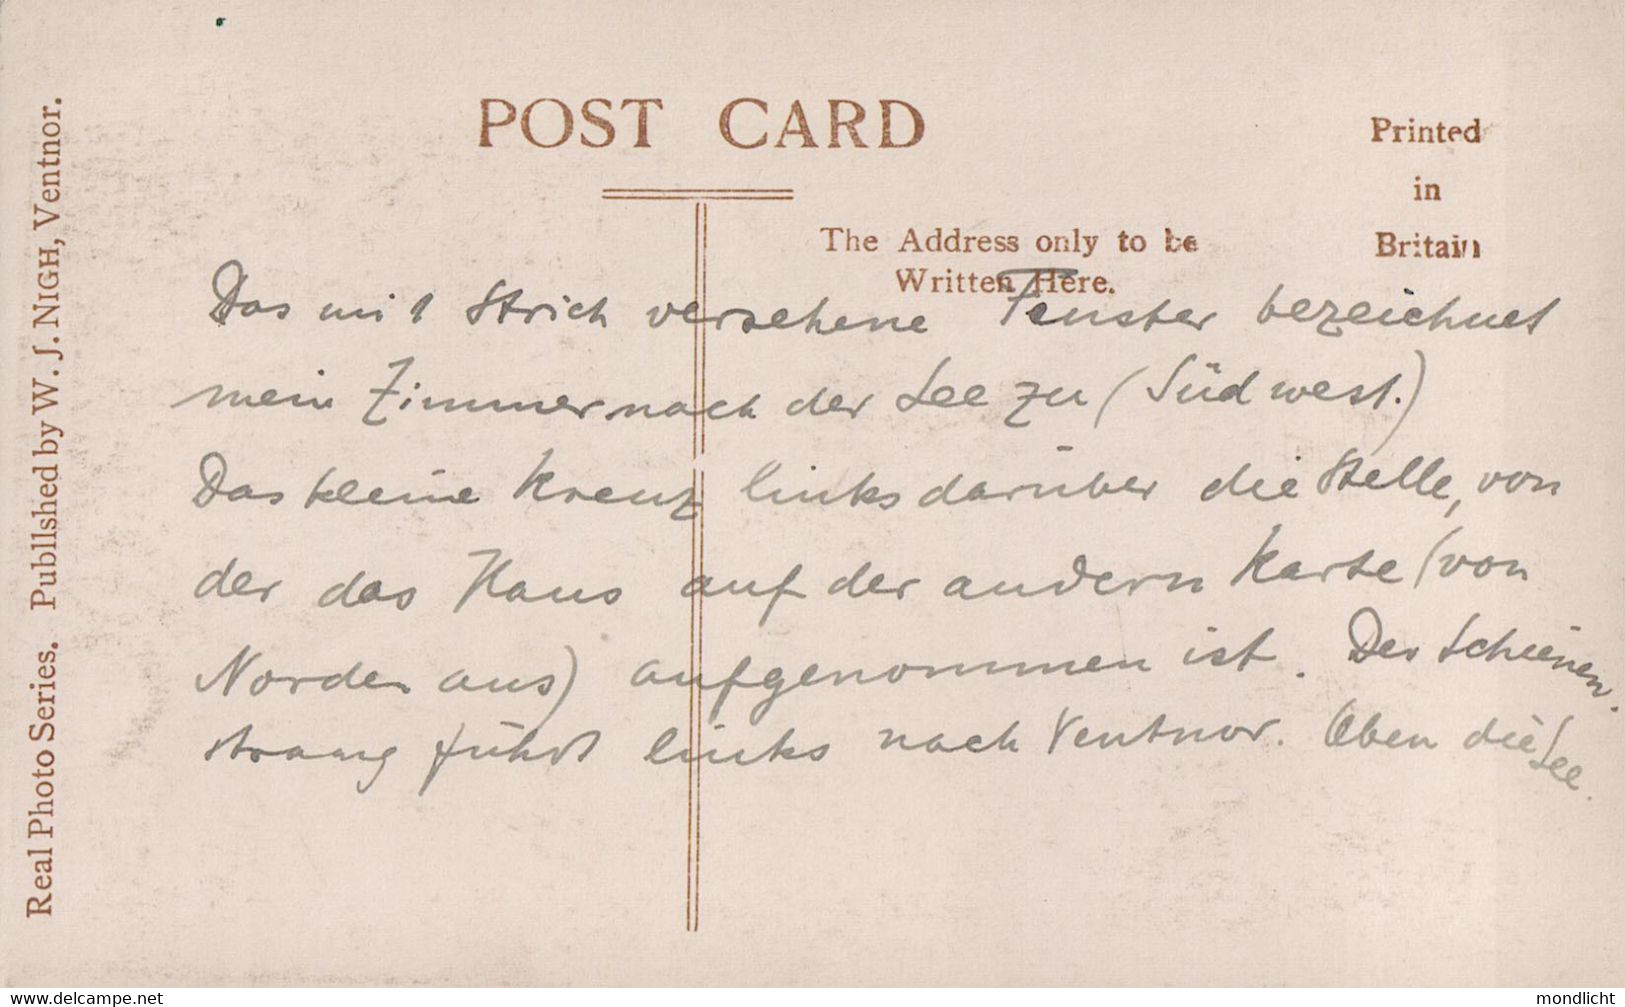 POST CARD
Printed
in
Britain
The Address only to be
Written Here.
Real Photo Series. Published by W. J. NIGH, Ventnor.
Das mit Strich versehene Fenster bezeichnet
mein Zimmer nach der See zu (Südwest.)
Das kleine Kreuz links darüber die Stelle, von
der das Haus auf der andern Karte (von
Norden aus) aufgenommen ist. Der Schienen-
strang führt links nach Ventnor. Oben die See.
www.delcampe.net
mondlicht